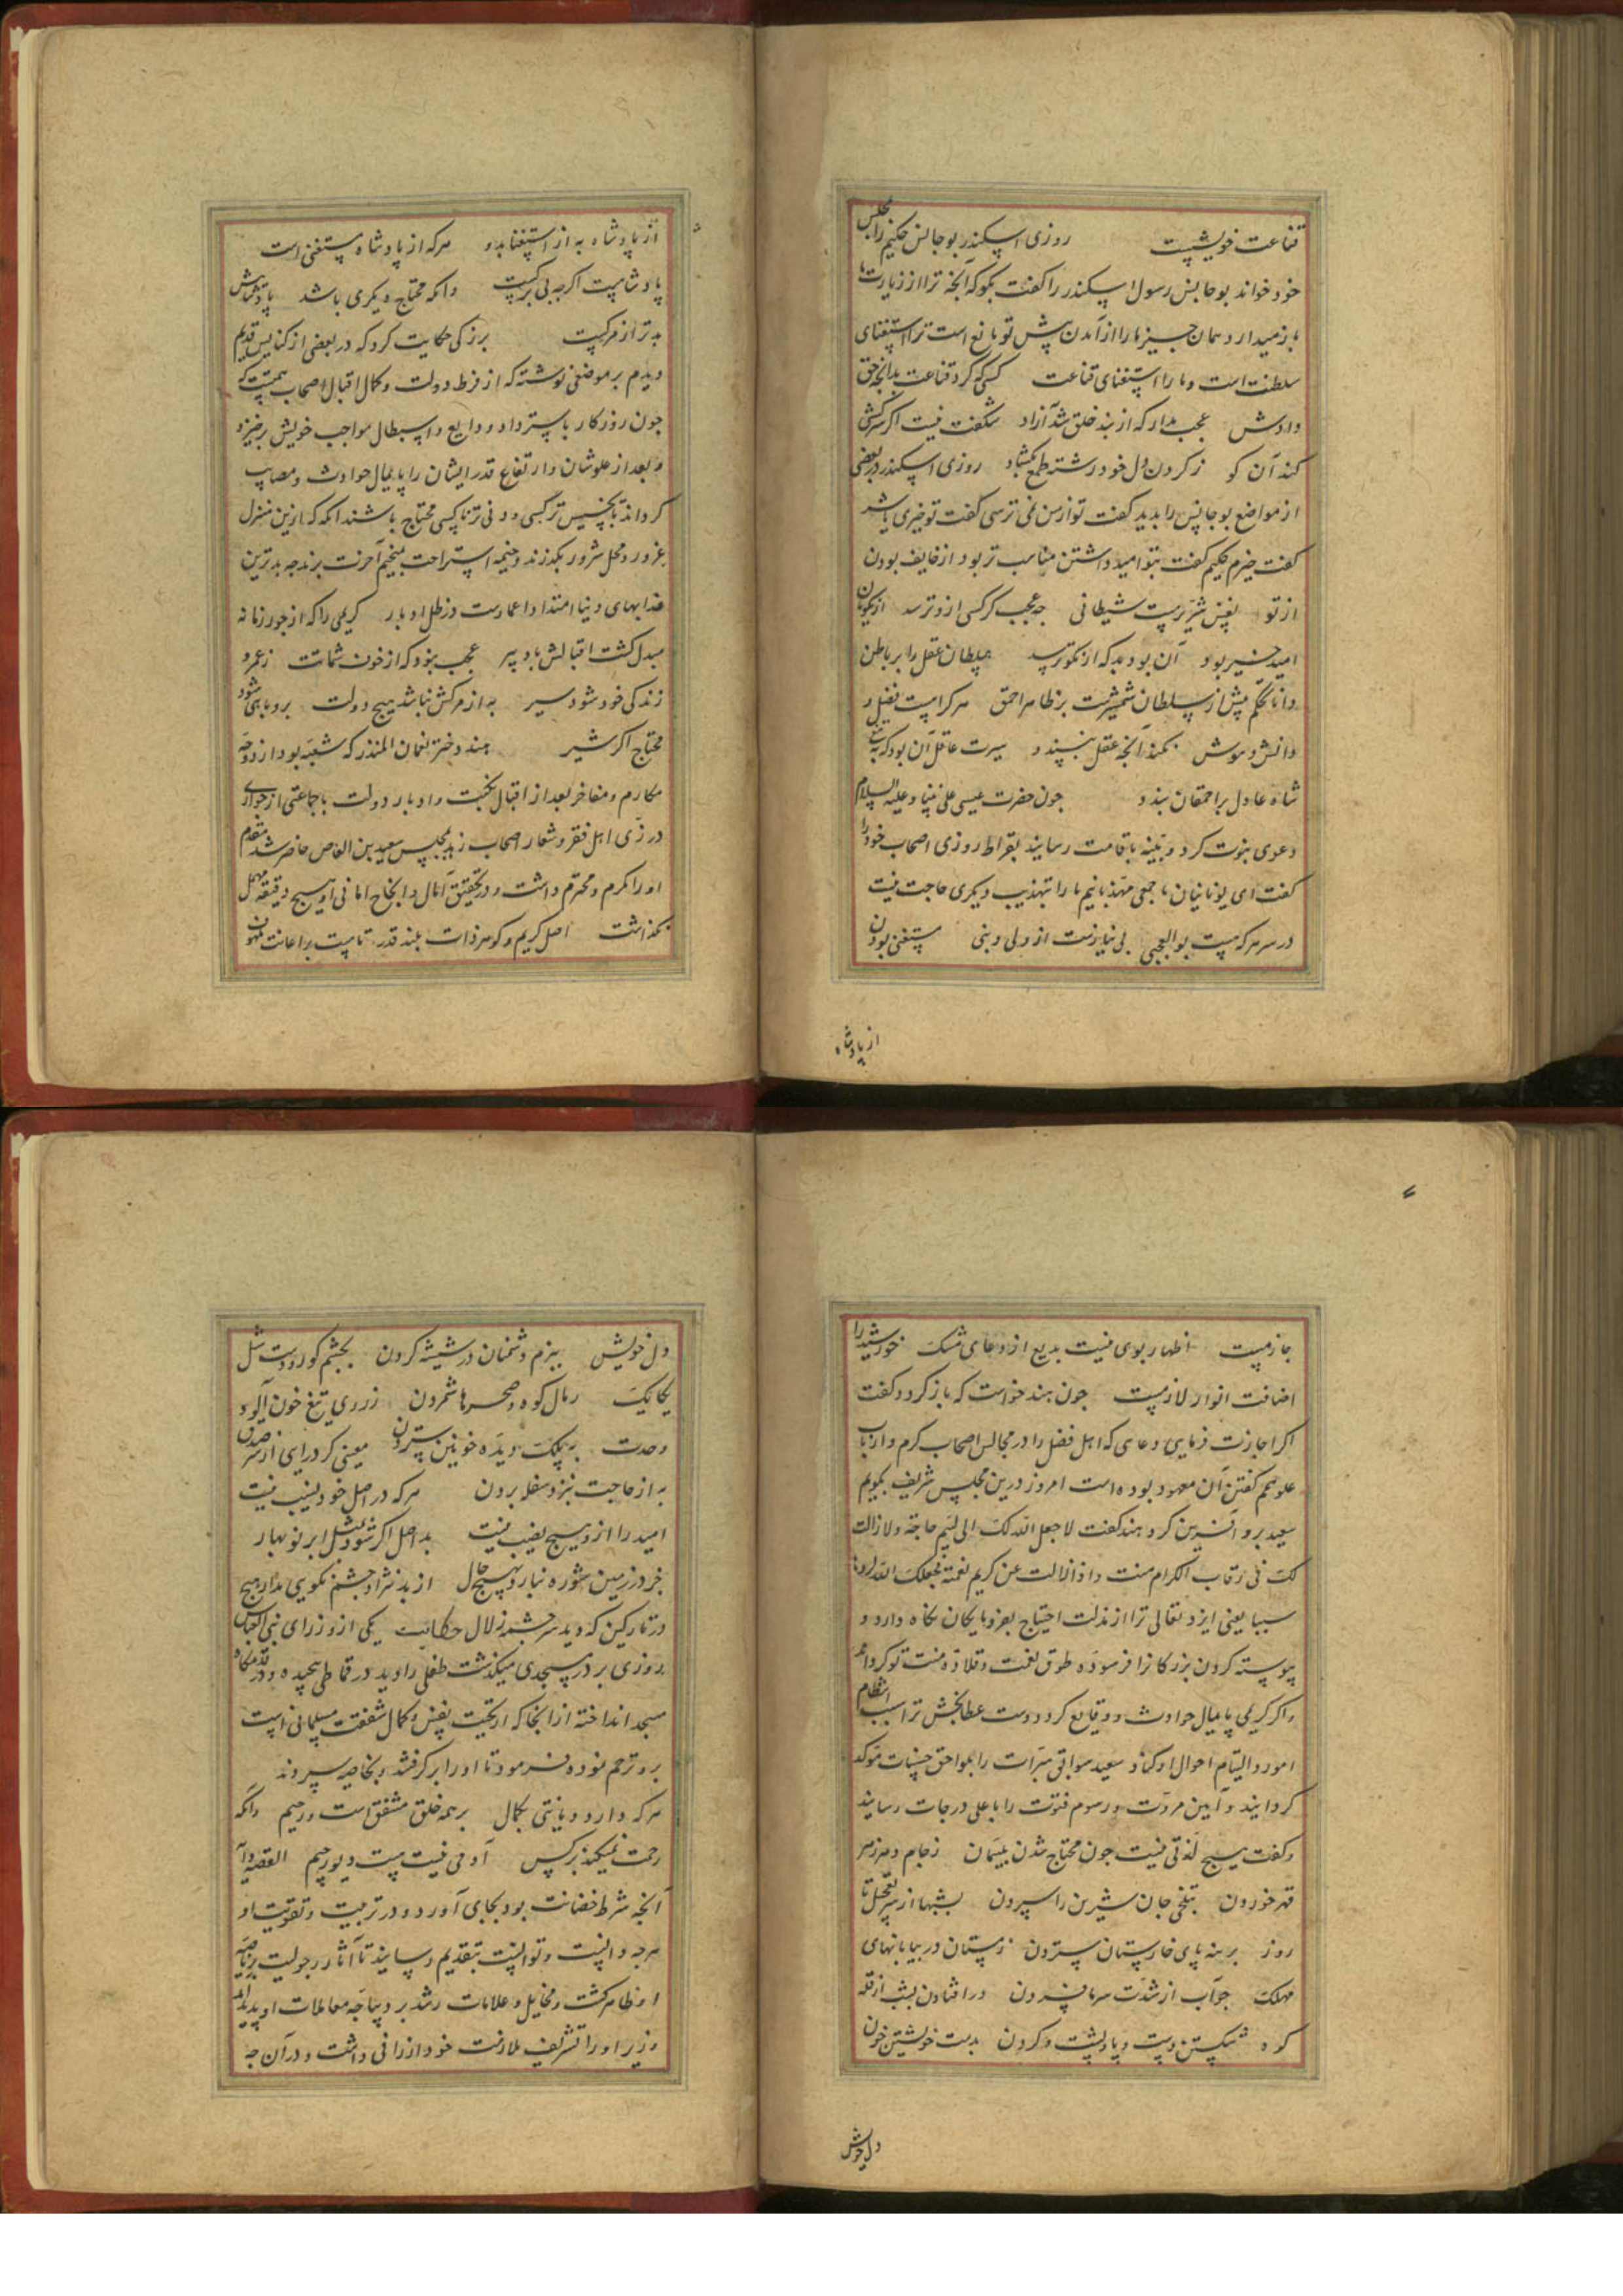 قناعت خویشست روزی اسکندر بوجالس حکیم را بمجلس
خود خواند بوجالس رسول اسکندر را کفت بکو که آنجه ترا از زیارت ما
باز میدارد همان جیز ما را از آمدن پیش تو مانع است ترا استغنای
سلطنت است و ما را استغنای قناعت کسی که کرد قناعت بدانجه حق
دادش عجب مدار که از بند خلق شد آزاد شکفت نیست اکر سرکشی
کند آن کو ز کردن دل خود رشته طمع بکشاد روزی اسکندر در بعضی
از مواضع بوجالس را بدید کفت تو از من نمی ترسی کفت تو خیری یا شر
کفت خیرم حکیم کفت بتو امید داشتن مناسب تر بود از خایف بودن
از تو نفس شریرست شیطانی جه عجب کر کسی ازو ترسد از نکویان
امید خیر بود آن بود بد که از نکو ترسد سلطان عقل را بر باطن
دانا تحکم بیش از سلطان شمشیرست بر ظاهر احمق هر کرا هست فضل و
دانش و هوش بکند آنجه عقل بپسندد سیرت عاقل آن بود که به تیغ
شاه عادل بر احمقان بندد جون حضرت عیسی علی نبینا و علیه السلام
دعوی نبوت کرد و بینه باقامت رسانید بقراط روزی اصحاب خود را
کفت ای یونانیان ما جمعی مهذبانیم ما را بتهذیب دیکری حاجت نیست
در سر هر که هست بوالعجبی بی نیازست از ولی و نبی مستغنی بودن
از پادشاه
از پادشاه به از استغنا بدو هر که از پادشاه مستغنی است
پادشاهست اکرجه بی برکست وانکه محتاج دیکری باشد پادشاهیش
بدتر از مرکست بزرکی حکایت کرد که در بعضی از کنایس قدیم
دیدم بر موضعی نوشته که از فرط دولت و کمال اقبال اصحاب همتست که
جون روزکار باسترداد ودایع و استبطال مواجب خویش برخیزد
و بعد از علو شان و ارتفاع قدر ایشان را پایمال حوادث و مصایب
کرداند تا بخسیس تر کسی و دنی تر ناکسی محتاج باشند انکه که ازین منزل
غرور و محل شرور بکذرند و خیمه استراحت بمخیم آخرت برند جه بدترین
عذابهای دنیا امتداد اعمارست در ظل ادبار کریمی را که از جور زمانه
مبدل کشت اقبالش بادبیر عجب نبود که از خون شماتت ز عمر و
زندکی خود شود سیر به از مرکش نباشد هیج دولت بروباهی شود
محتاج اکر شیر هند دختر نعمان المنذر که شعبه بود از دوحه
مکارم و مفاخر بعد از اقبال نکبت و ادبار دولت با جماعتی از جواری
در زی اهل فقر و شعار اصحاب زهد بمجلس سعید بن العاص حاضر شد مقدم
او را مکرم و محترم داشت و در تحقیق آمال و انجاح امانی او هیج دقیقه مهمل
نکذاشت اصل کریم و کوهر ذات بلند قدر تا هست بر اعانت ملهوف
جازمست اظهار بوی نیست بدیع از دعای مشک خورشید را
اضافت انوار لازمست جون هند خواست که باز کردد کفت
اکر اجازت فرمایی دعایی که اهل فضل را در مجالس اصحاب کرم و ارباب
علو همم کفتن آن معهود بوده است امروز درین مجلس شریف بکویم
سعید برو آفرین کرد هند کفت لا جعل الله لک الی لئیم حاجة ولا زالت
لک فی رقاب الکرام منت و اذا زالت عن کریم نعمة فجعلک الله لردها
سببا یعنی ایزد تعالی ترا از مذلت احتیاج بفرومایکان نکاه دارد و
پیوسته کردن بزرکانرا فرسوده طوق نعمت و قلاده منت تو کرداند
و اکر کریمی پایمال حوادث و وقایع کردد دست عطابخش ترا سبب انتظام
امور و التیام احوال او کناد سعید سوابق مبرات را بلواحق حسنات موکد
کردانید و آیین مروت و رسوم فتوت را باعلی درجات رسانید
و کفت هیج لذتی نیست جون محتاج شدن بلئیمان ز جام دهر زهر
قهر خوردن بتلخی جان شیرین را سپردن بشبها از سر تعجیل تا
روز برهنه پای خارستان ستردن زمستان در بیابانهای
مهلک جو آب از شدت سرما فسردن در افتادن بشب از قله
کوه شکستن دست و پا و پشت و کردن بدست خویشتن خون
دل خویش
دل خویش ببزم دشمنان در شیشه کردن بجشم کور و دست شل
یکایک رمال کوه و صحرا شمردن ز روی تیغ خون آلود
وحدت به پلک دیده خونین ستردن معینی کر در ای از سر صدق
به از حاجت بنزد سفله بردن هر که در اصل خود نسیب نیست
امید را ازو هیج نصیب نیست بد اصل اکر شود بمثل ابر نوبهار
جز در زمین شوره نبارد بهیج حال از بد نژاد جشم نکویی مدار هیج
در تمارکین که دید سرجشمه زلال حکایت یکی از وزرای بنی العباس
روزی بر در مسجدی میکذشت طفلی را دید در قماطی پیجیده و در قدمکاه
مسجد انداخته از انجا که ارتحیت نفس و کمال شفقت مسلمانی است
برو ترحم نموده فرمود تا او را برکرفتند و بخاصه سپردند
هر که دارد دیانتی بکمال بر همه خلق مشفق است و رحیم وانکه
رحمت نمیکند بر کس آدمی نیست هست دیو رجیم القصه دایه
آنجه شرط حضانت بود بجای آورد و در تربیت و تقویت او
هرجه دانست و توانست بتقدیم رسانید تا آثار رجولیت بر ناصیه
او ظاهر کشت و مخایل و علامات رشد بر دیباجه معاملات او پدید آمد
وزیر او را تشریف ملازمت خود ارزانی داشت و در آن جه